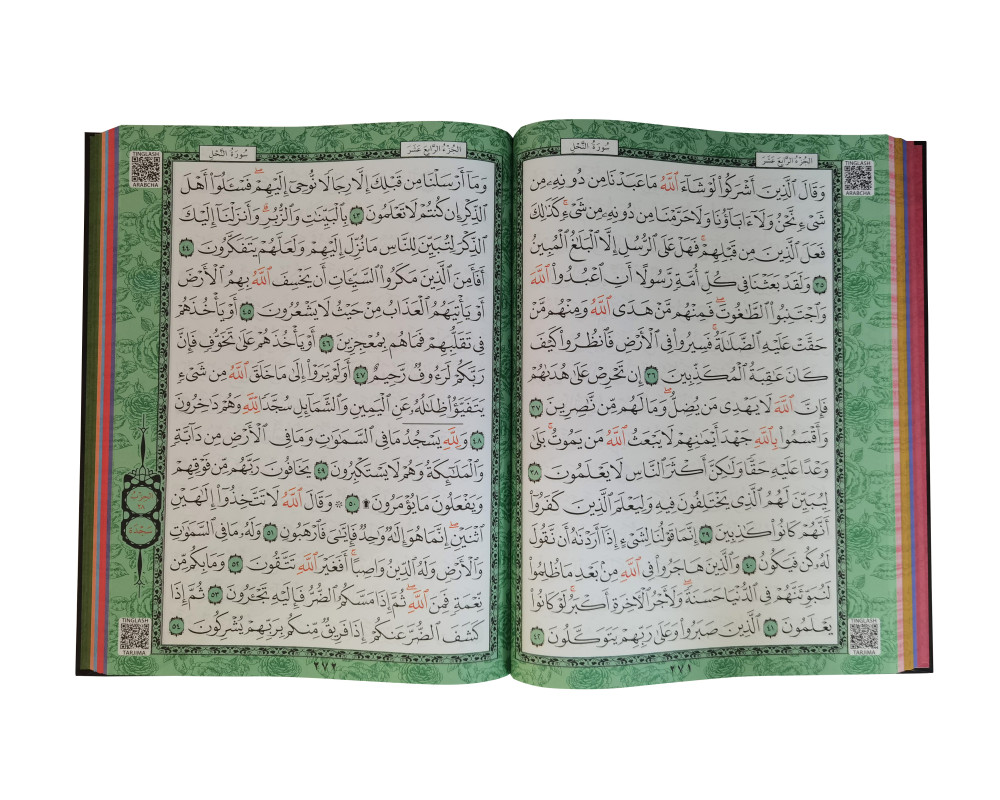 سُورَةُ النَّحْلِ
الجُزْءُ الرَّابِعَ عَشَرَ
TINGLASH
ARABCHA
وَقَالَ ٱلَّذِينَ أَشْرَكُوا۟ لَوْ شَآءَ ٱللَّهُ مَا عَبَدْنَا مِن دُونِهِۦ مِن
شَىْءٍ نَّحْنُ وَلَآ ءَابَآؤُنَا وَلَا حَرَّمْنَا مِن دُونِهِۦ مِن شَىْءٍ ۚ كَذَٰلِكَ
فَعَلَ ٱلَّذِينَ مِن قَبْلِهِمْ ۚ فَهَلْ عَلَى ٱلرُّسُلِ إِلَّا ٱلْبَلَٰغُ ٱلْمُبِينُ
٣٥ وَلَقَدْ بَعَثْنَا فِى كُلِّ أُمَّةٍ رَّسُولًا أَنِ ٱعْبُدُوا۟ ٱللَّهَ
وَٱجْتَنِبُوا۟ ٱلطَّٰغُوتَ ۖ فَمِنْهُم مَّنْ هَدَى ٱللَّهُ وَمِنْهُم مَّنْ
حَقَّتْ عَلَيْهِ ٱلضَّلَٰلَةُ ۚ فَسِيرُوا۟ فِى ٱلْأَرْضِ فَٱنظُرُوا۟ كَيْفَ
كَانَ عَٰقِبَةُ ٱلْمُكَذِّبِينَ ٣٦ إِن تَحْرِصْ عَلَىٰ هُدَىٰهُمْ
فَإِنَّ ٱللَّهَ لَا يَهْدِى مَن يُضِلُّ ۖ وَمَا لَهُم مِّن نَّٰصِرِينَ ٣٧
وَأَقْسَمُوا۟ بِٱللَّهِ جَهْدَ أَيْمَٰنِهِمْ ۙ لَا يَبْعَثُ ٱللَّهُ مَن يَمُوتُ ۚ بَلَىٰ
وَعْدًا عَلَيْهِ حَقًّا وَلَٰكِنَّ أَكْثَرَ ٱلنَّاسِ لَا يَعْلَمُونَ ٣٨
لِيُبَيِّنَ لَهُمُ ٱلَّذِى يَخْتَلِفُونَ فِيهِ وَلِيَعْلَمَ ٱلَّذِينَ كَفَرُوٓا۟
أَنَّهُمْ كَانُوا۟ كَٰذِبِينَ ٣٩ إِنَّمَا قَوْلُنَا لِشَىْءٍ إِذَآ أَرَدْنَٰهُ أَن نَّقُولَ
لَهُۥ كُن فَيَكُونُ ٤٠ وَٱلَّذِينَ هَاجَرُوا۟ فِى ٱللَّهِ مِنۢ بَعْدِ مَا ظُلِمُوا۟
لَنُبَوِّئَنَّهُمْ فِى ٱلدُّنْيَا حَسَنَةً ۖ وَلَأَجْرُ ٱلْـَٔاخِرَةِ أَكْبَرُ ۚ لَوْ كَانُوا۟
يَعْلَمُونَ ٤١ ٱلَّذِينَ صَبَرُوا۟ وَعَلَىٰ رَبِّهِمْ يَتَوَكَّلُونَ ٤٢
TINGLASH
TARJIMA
٢٧١
الجُزْءُ الرَّابِعَ عَشَرَ
سُورَةُ النَّحْلِ
TINGLASH
ARABCHA
وَمَآ أَرْسَلْنَا مِن قَبْلِكَ إِلَّا رِجَالًا نُّوحِىٓ إِلَيْهِمْ ۖ فَسْـَٔلُوٓا۟ أَهْلَ
ٱلذِّكْرِ إِن كُنتُمْ لَا تَعْلَمُونَ ٤٣ بِٱلْبَيِّنَٰتِ وَٱلزُّبُرِ ۗ وَأَنزَلْنَآ إِلَيْكَ
ٱلذِّكْرَ لِتُبَيِّنَ لِلنَّاسِ مَا نُزِّلَ إِلَيْهِمْ وَلَعَلَّهُمْ يَتَفَكَّرُونَ ٤٤
أَفَأَمِنَ ٱلَّذِينَ مَكَرُوا۟ ٱلسَّيِّـَٔاتِ أَن يَخْسِفَ ٱللَّهُ بِهِمُ ٱلْأَرْضَ
أَوْ يَأْتِيَهُمُ ٱلْعَذَابُ مِنْ حَيْثُ لَا يَشْعُرُونَ ٤٥ أَوْ يَأْخُذَهُمْ
فِى تَقَلُّبِهِمْ فَمَا هُم بِمُعْجِزِينَ ٤٦ أَوْ يَأْخُذَهُمْ عَلَىٰ تَخَوُّفٍ فَإِنَّ
رَبَّكُمْ لَرَءُوفٌ رَّحِيمٌ ٤٧ أَوَلَمْ يَرَوْا۟ إِلَىٰ مَا خَلَقَ ٱللَّهُ مِن شَىْءٍ
يَتَفَيَّؤُا۟ ظِلَٰلُهُۥ عَنِ ٱلْيَمِينِ وَٱلشَّمَآئِلِ سُجَّدًا لِّلَّهِ وَهُمْ دَٰخِرُونَ
٤٨ وَلِلَّهِ يَسْجُدُ مَا فِى ٱلسَّمَٰوَٰتِ وَمَا فِى ٱلْأَرْضِ مِن دَآبَّةٍ
وَٱلْمَلَٰٓئِكَةُ وَهُمْ لَا يَسْتَكْبِرُونَ ٤٩ يَخَافُونَ رَبَّهُم مِّن فَوْقِهِمْ
وَيَفْعَلُونَ مَا يُؤْمَرُونَ ۩ ٥٠ ۞ وَقَالَ ٱللَّهُ لَا تَتَّخِذُوٓا۟ إِلَٰهَيْنِ
ٱثْنَيْنِ ۖ إِنَّمَا هُوَ إِلَٰهٌ وَٰحِدٌ ۖ فَإِيَّٰىَ فَٱرْهَبُونِ ٥١ وَلَهُۥ مَا فِى ٱلسَّمَٰوَٰتِ
وَٱلْأَرْضِ وَلَهُ ٱلدِّينُ وَاصِبًا ۚ أَفَغَيْرَ ٱللَّهِ تَتَّقُونَ ٥٢ وَمَا بِكُم مِّن
نِّعْمَةٍ فَمِنَ ٱللَّهِ ۖ ثُمَّ إِذَا مَسَّكُمُ ٱلضُّرُّ فَإِلَيْهِ تَجْـَٔرُونَ ٥٣ ثُمَّ إِذَا
كَشَفَ ٱلضُّرَّ عَنكُمْ إِذَا فَرِيقٌ مِّنكُم بِرَبِّهِمْ يُشْرِكُونَ ٥٤
سجدة
TINGLASH
TARJIMA
٢٧٢